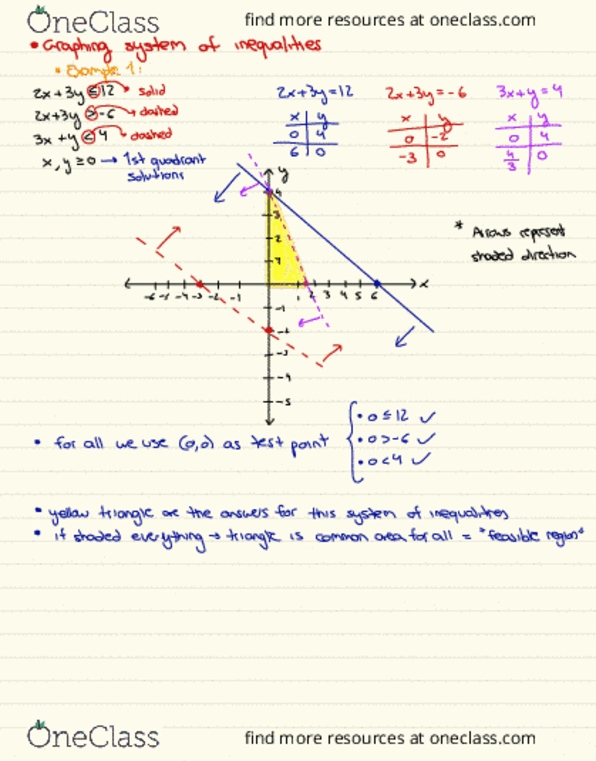 OneClass find more resources at oneclass.com
• Graphing system of inequalities
• Example 1:
2x+3y ≤ 12 → solid
2x+3y > -6 → dashed
3x+y < 4 → dashed
x, y ≥ 0 → 1st quadrant
solutions
2x+3y=12
x y
0 4
6 0
2x+3y=-6
x y
0 -2
-3 0
3x+y=4
x y
0 4
4/3 0
y
4
3
2
1
-6 -5 -4 -3 -2 -1 1 2 3 4 5 6 x
-1
-2
-3
-4
-5
* Arrows represent
shaded direction
• for all we use (0,0) as test point
• 0 ≤ 12 ✓
• 0 > -6 ✓
• 0 < 4 ✓
• yellow triangle are the answers for this system of inequalities
• if shaded everything → triangle is common area for all = "feasible region"
OneClass find more resources at oneclass.com